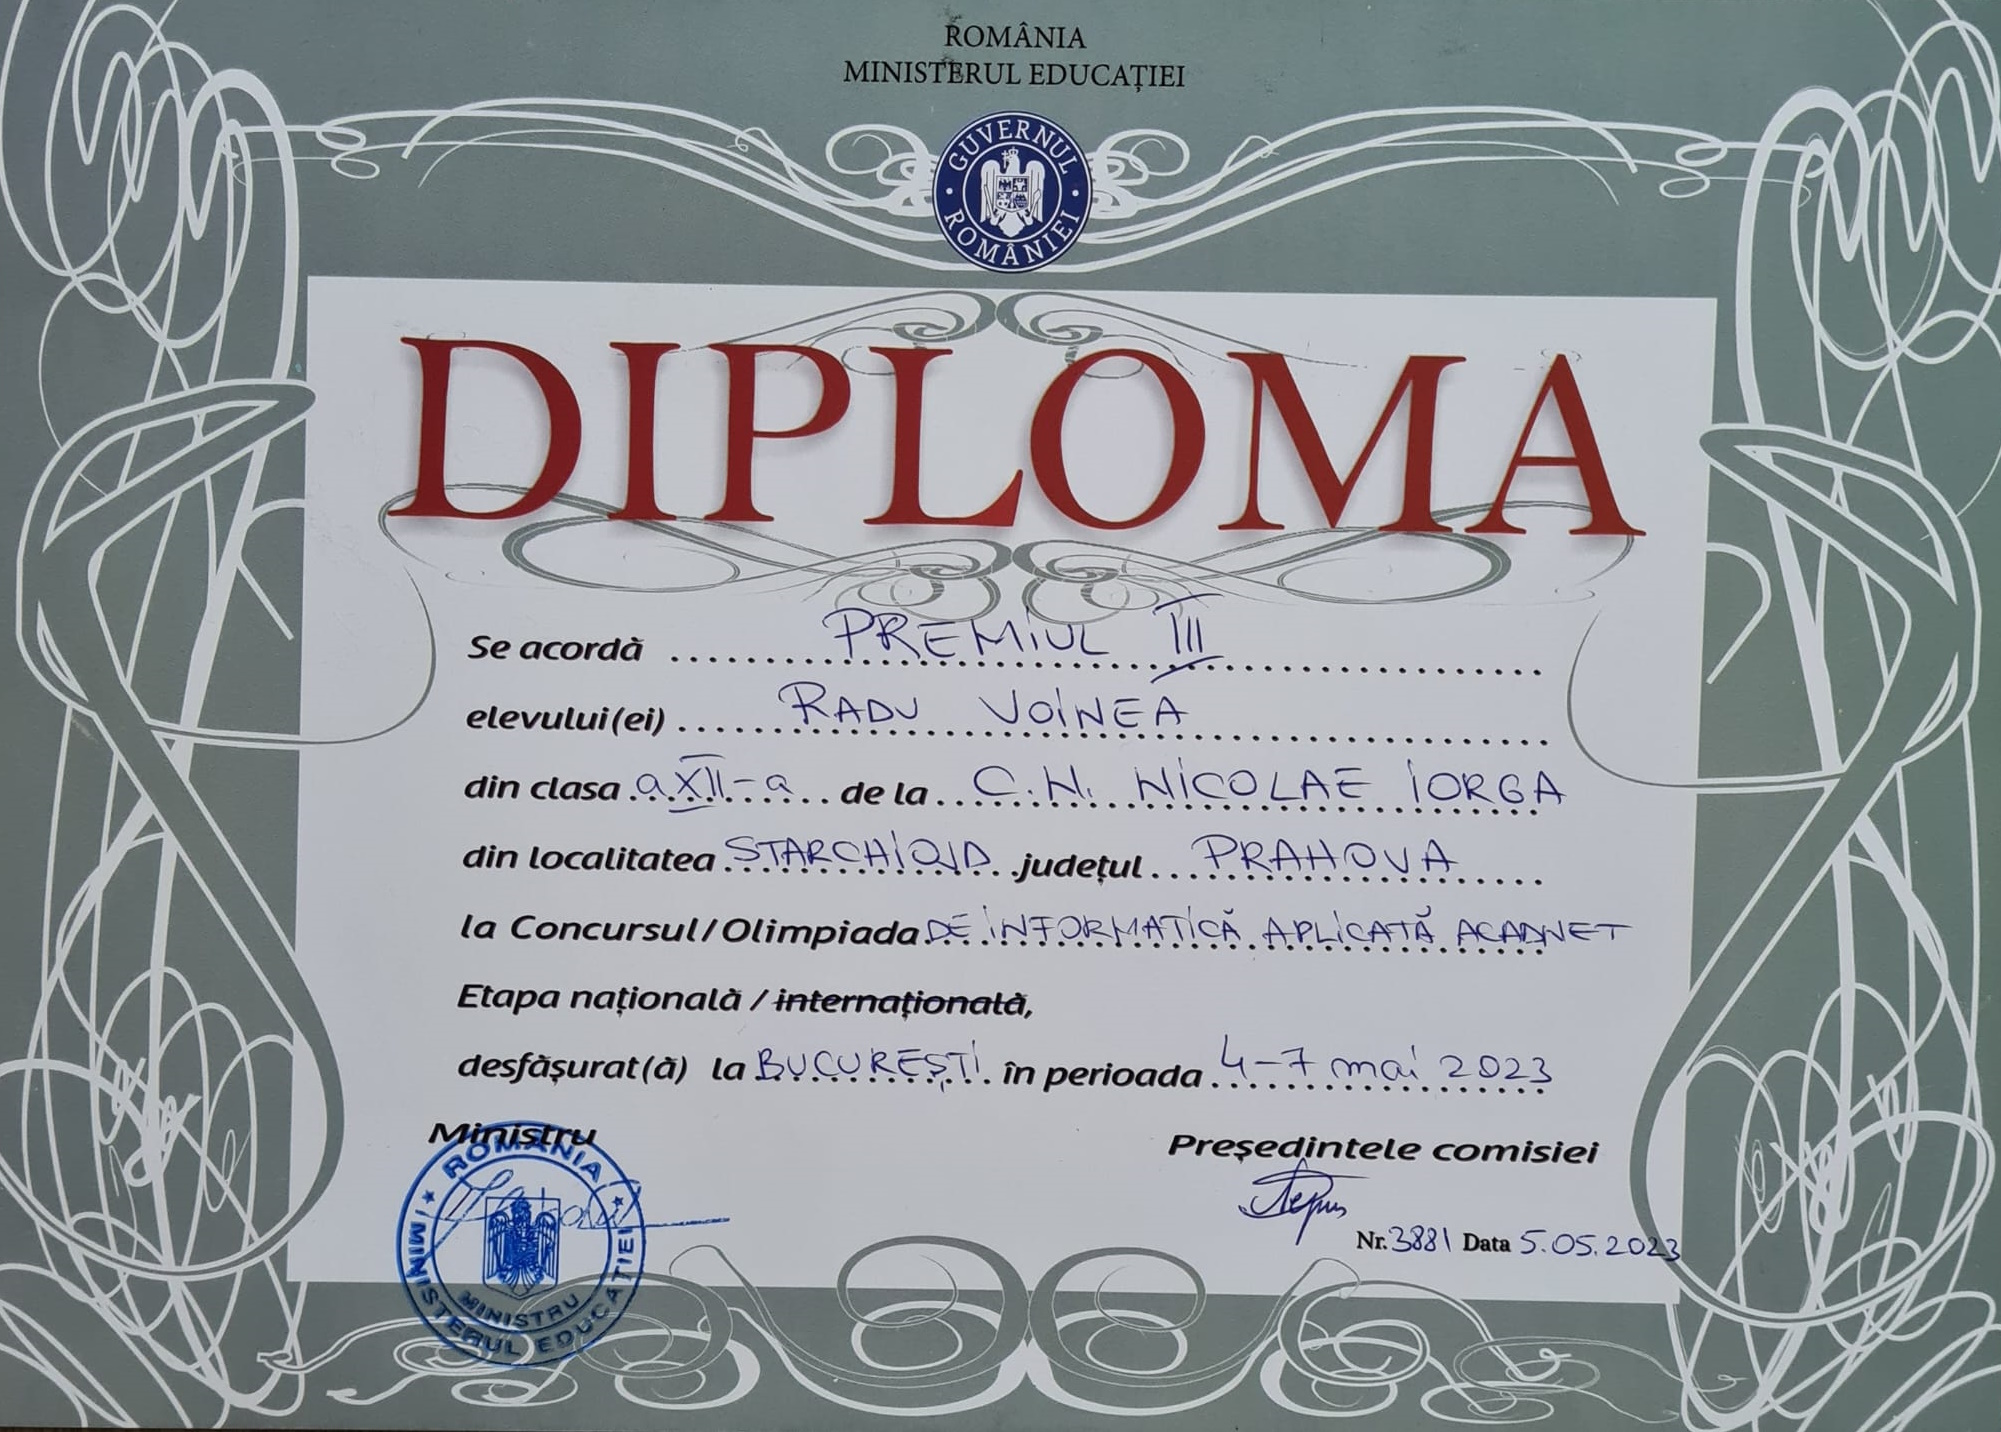 ROMÂNIA
MINISTERUL EDUCAȚIEI
GUVERNUL ROMÂNIEI
DIPLOMA
Se acordă PREMIUL III
elevului(ei) RADU VOINEA
din clasa a XII-a de la C.N. NICOLAE IORGA
din localitatea STARCHIOJD județul PRAHOVA
la Concursul/Olimpiada DE INFORMATICĂ APLICATĂ ACADNET
Etapa națională / internațională,
desfășurat(ă) la BUCUREȘTI în perioada 4-7 mai 2023
Ministru
Președintele comisiei
ROMÂNIA
MINISTERUL EDUCAȚIEI
MINISTRU
Nr. 3881 Data 5.05.2023